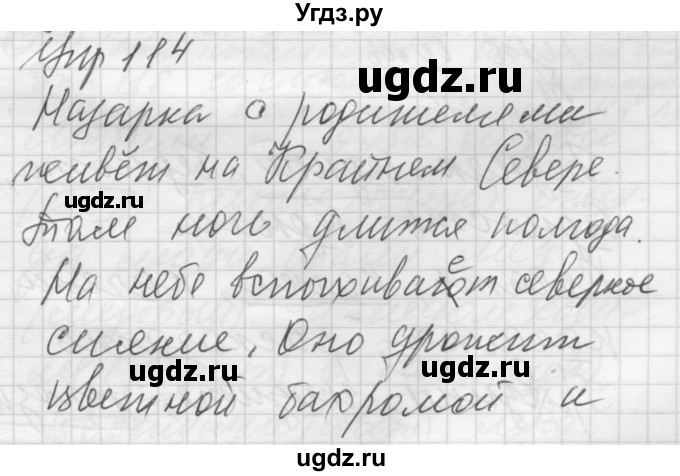 Угдз.ру
Упр 114
ugdz.ru
Назарка с родителями
живёт на Крайнем Севере.
ugdz.ru
Там ночь длится полгода.
На небе вспыхивает северное
сияние. Оно дрожит
ugdz.ru ugdz.ru
цветной бахромой и
ugdz.ru